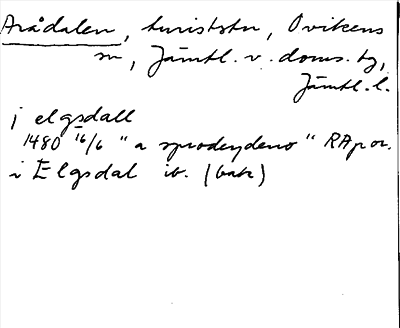 Arådalen, turiststn, Ovikens
sn, Jämtl. v. doms. tg,
Jämtl. l.
j elgsdall
1480 16/6 "a sprodeydeno" RAp or.
i Elgsdal ib. (bak)